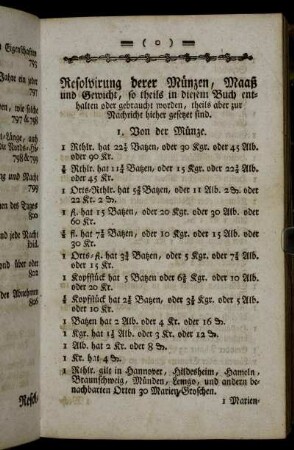 Eigenschaften
795
Jahre ein jeder
wie solche
797 & 798
Länge, auf
798 & 799
und Nacht
799
des Tages
800
und jede Nacht
ibid.
und über oder
802
den Abnehmen
806
Resol-
( o )
Resolvirung derer Münzen, Maaß
und Gewicht, so theils in diesem Buch ent-
halten oder gebraucht worden, theils aber zur
Nachricht hieher gesetzt sind.
1. Von der Münze.
1 Rthlr. hat 22½ Batzen, oder 30 Kgr. oder 45 Alb.
oder 90 Kr.
½ Rthlr. hat 11¼ Batzen, oder 15 Kgr. oder 22½ Alb.
oder 45 Kr.
1 Orts-Rthlr. hat 5⅝ Batzen, oder 11 Alb. 2 ₰. oder
22 Kr. 2 ₰.
1 fl. hat 15 Batzen, oder 20 Kgr. oder 30 Alb. oder
60 Kr.
½ fl. hat 7½ Batzen, oder 10 Kgr. oder 15 Alb. oder
30 Kr.
1 Orts-fl. hat 3¾ Batzen, oder 5 Kgr. oder 7½ Alb.
oder 15 Kr.
1 Kopfstück hat 5 Batzen oder 6⅔ Kgr. oder 10 Alb.
oder 20 Kr.
½ Kopfstück hat 2½ Batzen, oder 3⅓ Kgr. oder 5 Alb.
oder 10 Kr.
1 Batzen hat 2 Alb. oder 4 Kr. oder 16 ₰.
1 Kgr. hat 1½ Alb. oder 3 Kr. oder 12 ₰.
1 Alb. hat 2 Kr. oder 8 ₰.
1 Kr. hat 4 ₰.
1 Rthlr. gilt in Hannover, Hildesheim, Hameln,
Braunschweig, Münden, Lemgo, und andern be-
nachbarten Orten 30 Marien-Groschen.
1 Marien-